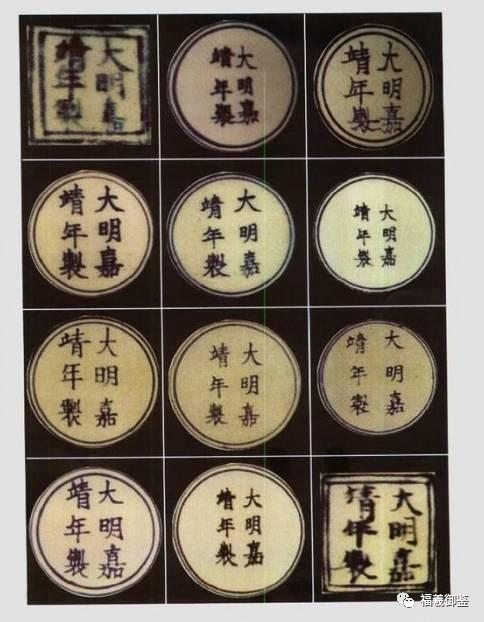 大明嘉
靖年製
大明嘉
靖年製
大明嘉
靖年製
大明嘉
靖年製
大明嘉
靖年製
大明嘉
靖年製
大明嘉
靖年製
大明嘉
靖年製
大明嘉
靖年製
大明嘉
靖年製
大明嘉
靖年製
大明嘉
靖年製
福羲御鉴